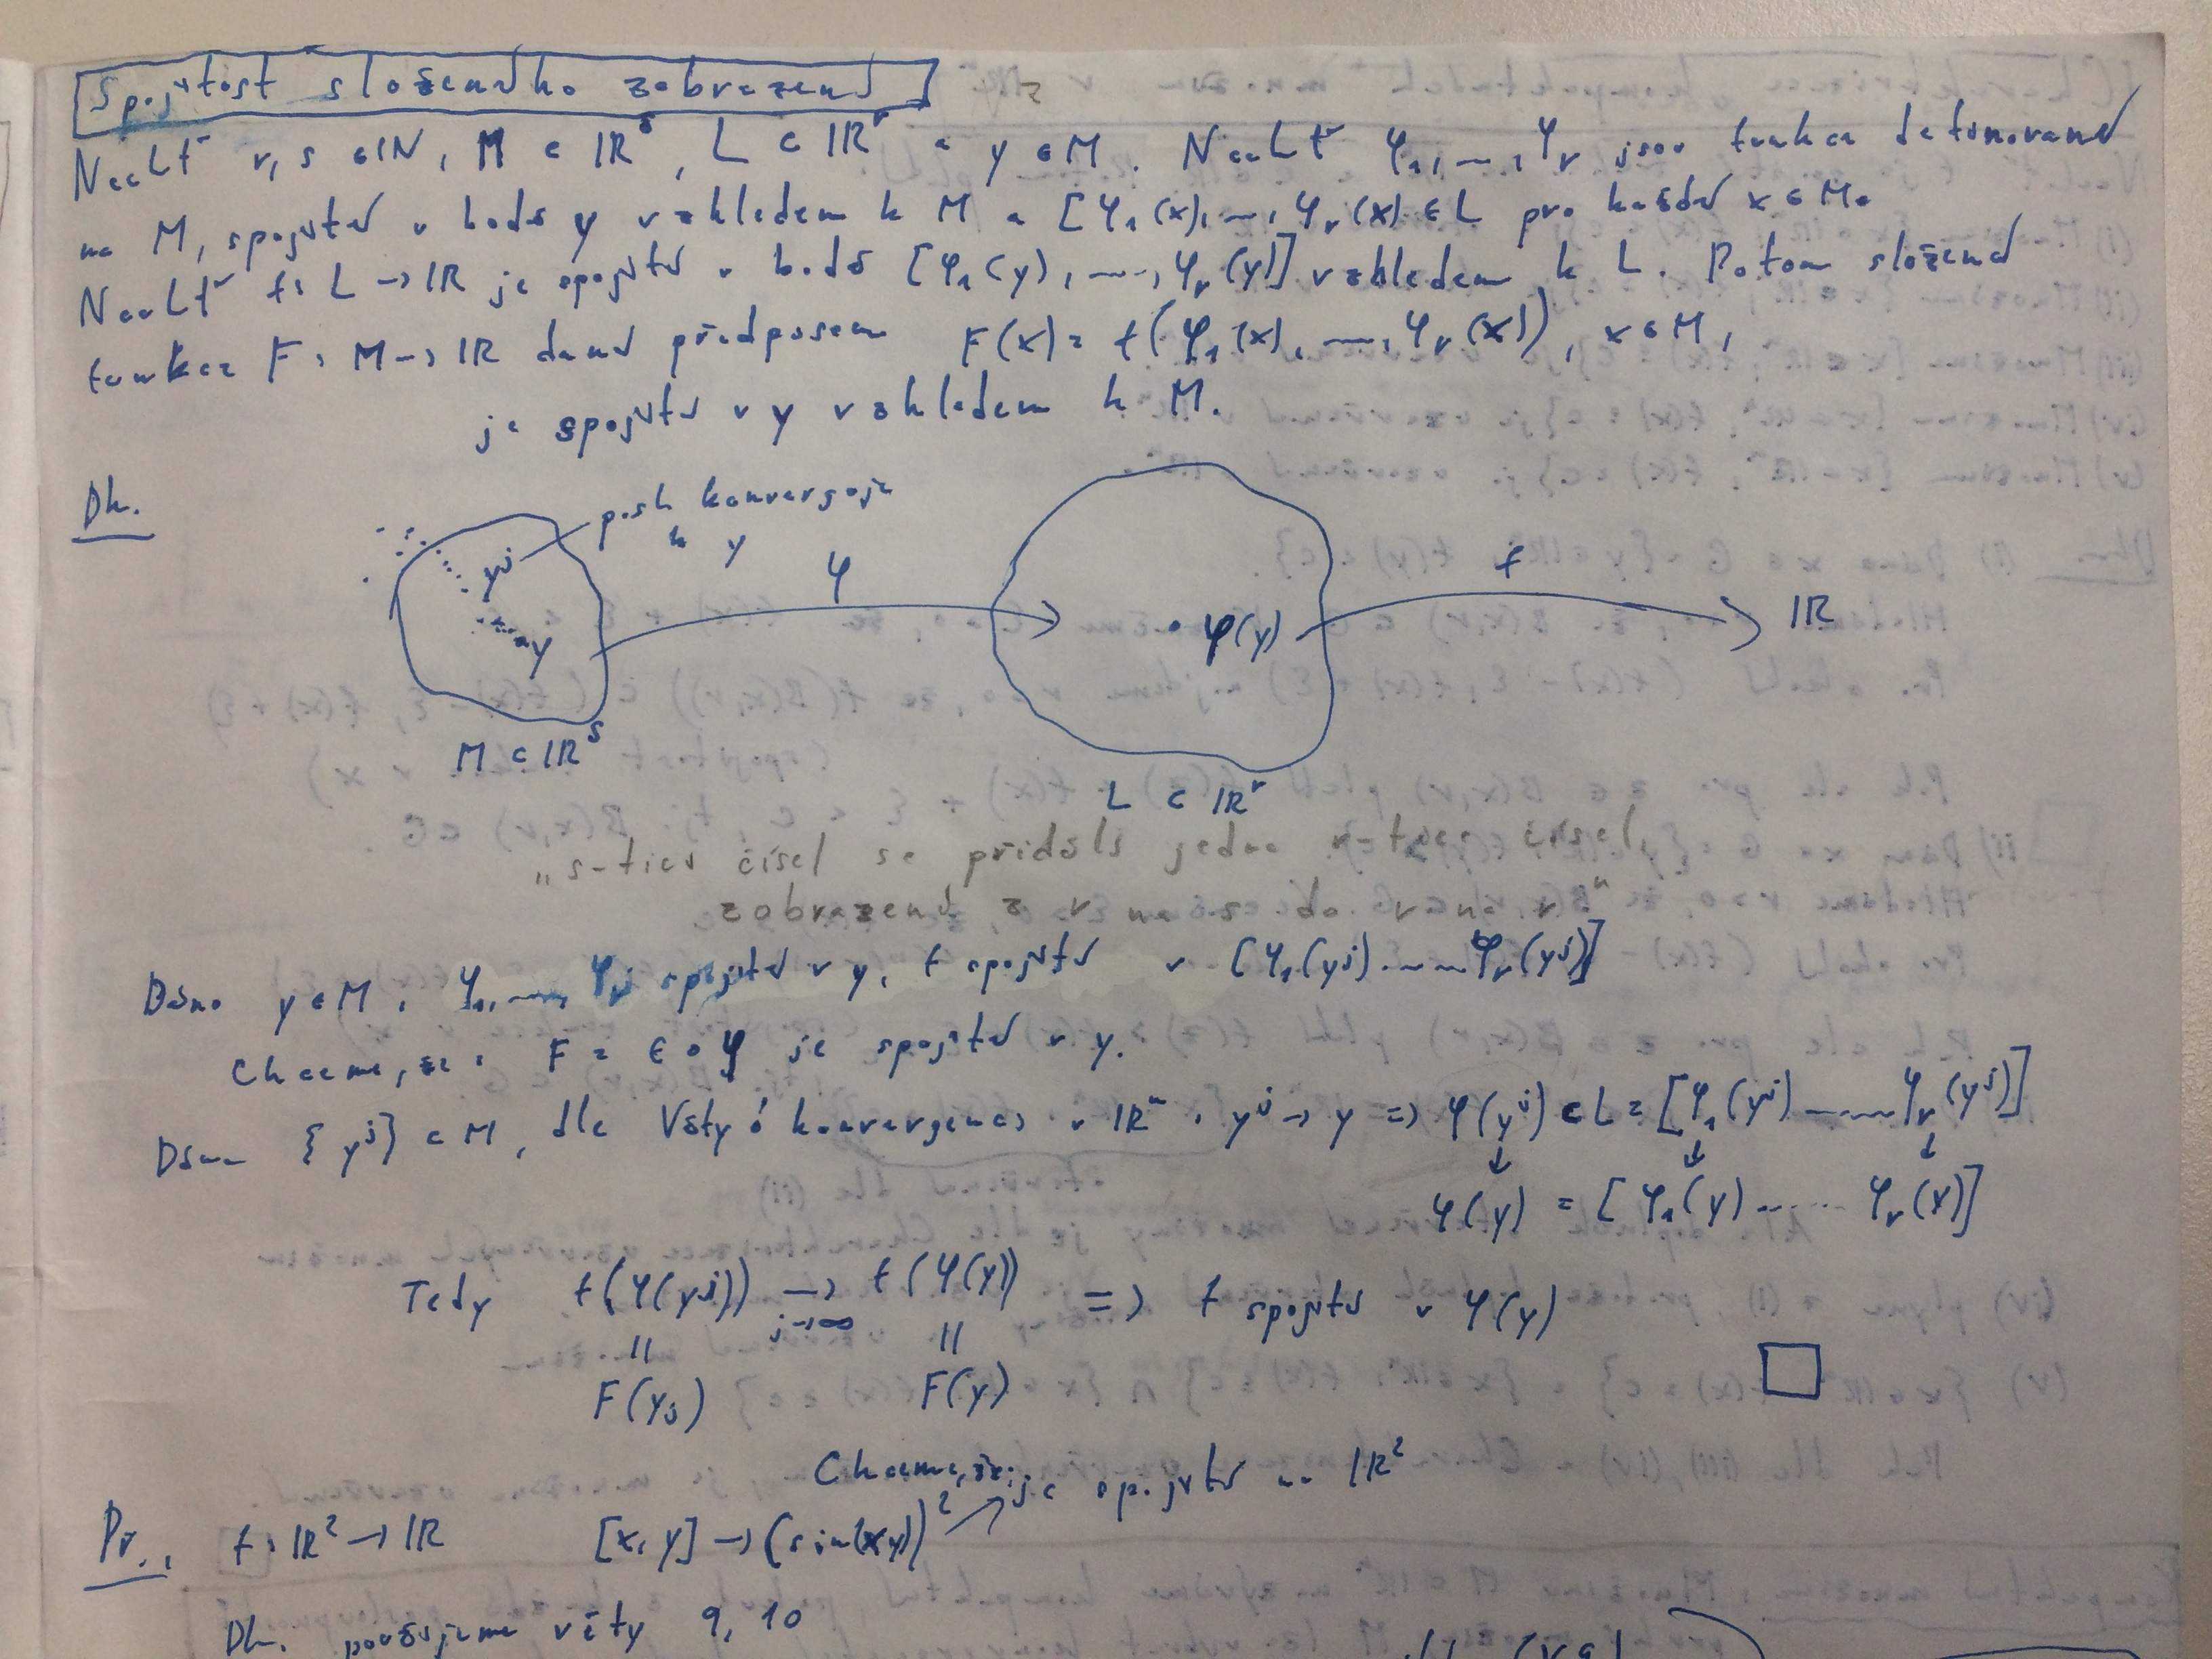 Spojitost složeného zobrazení
Nechť r, s ∈ ℕ, M ⊂ ℝˢ, L ⊂ ℝʳ a y ∈ M. Nechť φ₁, ..., φᵣ jsou funkce definované
na M, spojité v bodě y vzhledem k M a [φ₁(x), ..., φᵣ(x) ∈ L pro každé x ∈ M.
Nechť f: L → ℝ je spojitá v bodě [φ₁(y), ..., φᵣ(y)] vzhledem k L. Potom složená
funkce F: M → ℝ daná předpisem F(x) = f(φ₁(x), ..., φᵣ(x)), x ∈ M,
je spojitá v y vzhledem k M.
Dk.
posl. konverguje
k y
yʲ
φ
f
y
φ(y)
ℝ
M ⊂ ℝˢ
L ⊂ ℝʳ
„s-tici čísel se přidělí jedna r-tice čísel,
Dáno y ∈ M, φ₁, ..., φᵣ spojité v y, f spojitá v [φ₁(yʲ) ... φᵣ(yʲ)]
Chceme, že: F = f ∘ φ je spojitá v y.
{yʲ} ⊂ M, dle Věty o konvergenci v ℝⁿ: yʲ → y ⇒ φ(yʲ) ∈ L = [φ₁(yʲ) ... φᵣ(yʲ)]
↓ ↓ ↓
φ(y) = [φ₁(y) ... φᵣ(y)]
Tedy f(φ(yʲ)) → f(φ(y)) ⇒ f spojitá v φ(y)
j→∞
|| ||
F(yⱼ) F(y)
□
Chceme, že: je spojitá na ℝ²
Př.: f: ℝ² → ℝ [x, y] → (sin(xy))²
Dk. použijeme věty 9, 10